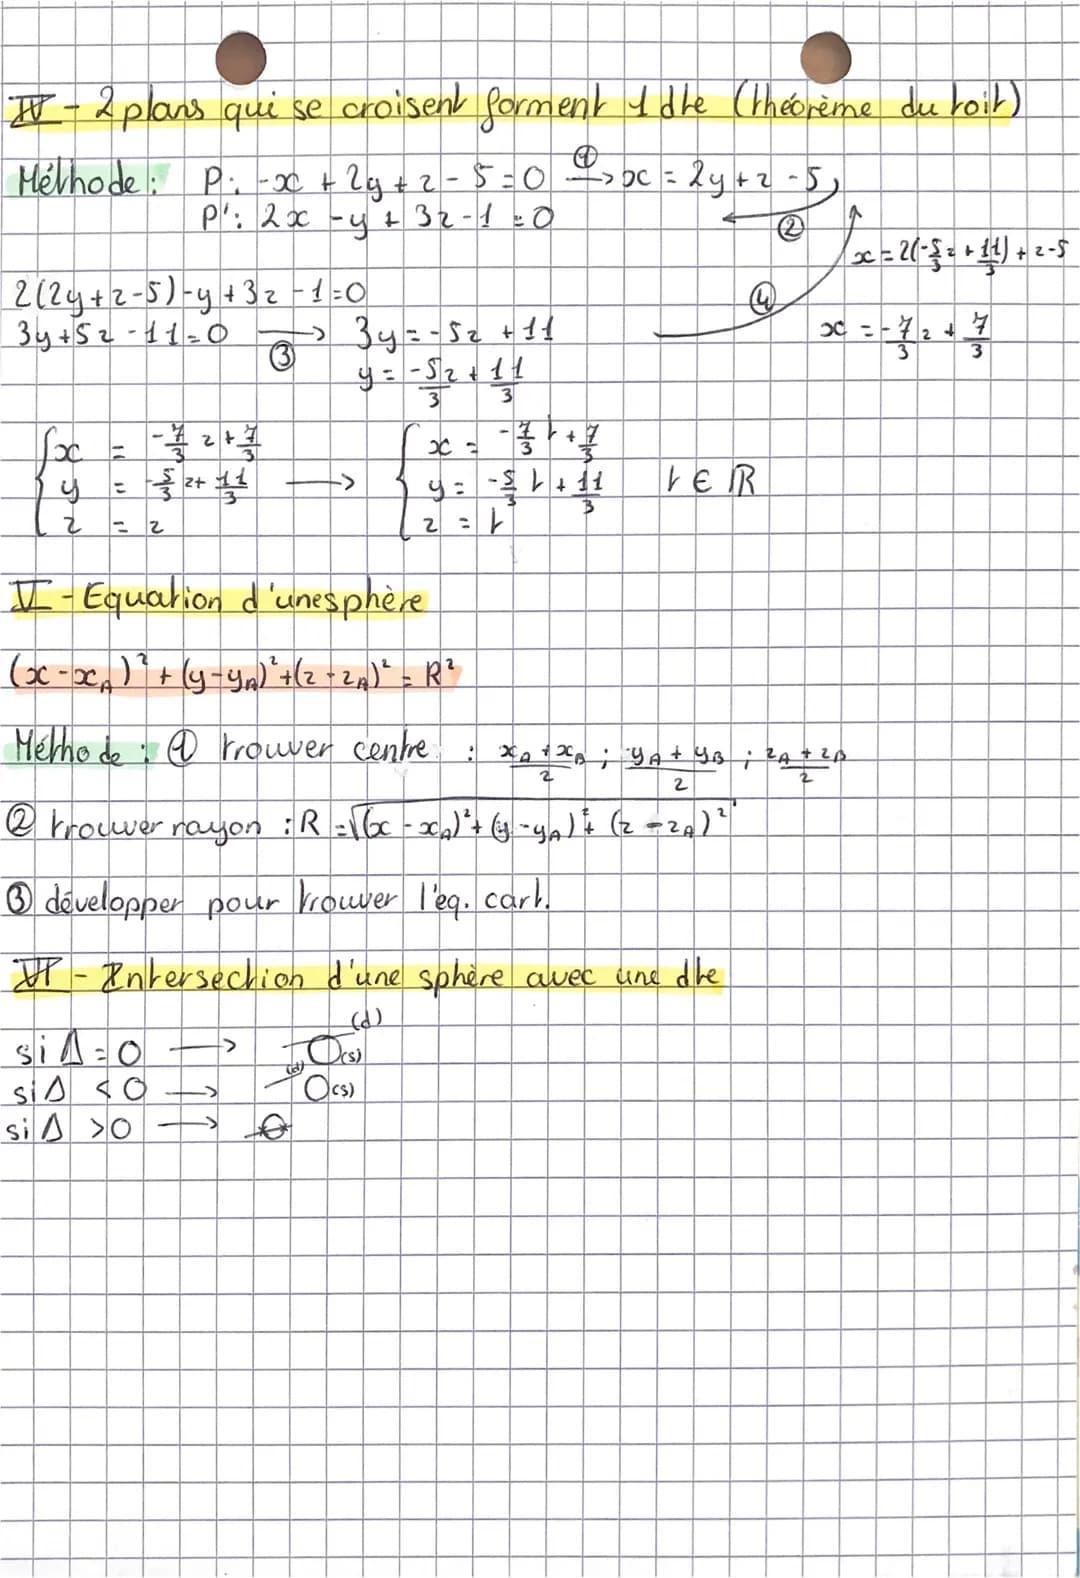 IV - 2 plans qui se croisent forment 1 dte (théorème du toit)
Méthode : P: -x + 2y + z - 5 = 0 ①→ x = 2y + z - 5
P': 2x - y + 3z - 1 = 0
②
x = 2(-5/3 z + 11/3) + z - 5
2(2y + z - 5) - y + 3z - 1 = 0
④
3y + 5z - 11 = 0 →③ 3y = -5z + 11
x = -7/3 z + 7/3
y = -5z/3 + 11/3
{x = -7/3 z + 7/3 → {x = -7/3 t + 7/3
y = -5/3 z + 11/3 y = -5/3 t + 11/3 t ∈ ℝ
z = z z = t
V - Equation d'une sphère
(x - xA)² + (y - yA)² + (z - zA)² = R²
Méthode : ① trouver centre : xA + xB / 2 ; yA + yB / 2 ; zA + zB / 2
② trouver rayon : R = √(x - xA)² + (y - yA)² + (z - zA)²
③ développer pour trouver l'éq. cart.
VI - Intersection d'une sphère avec une dte
si Δ = 0 → (d) (s)
si Δ < 0 → (d) (s)
si Δ > 0 →